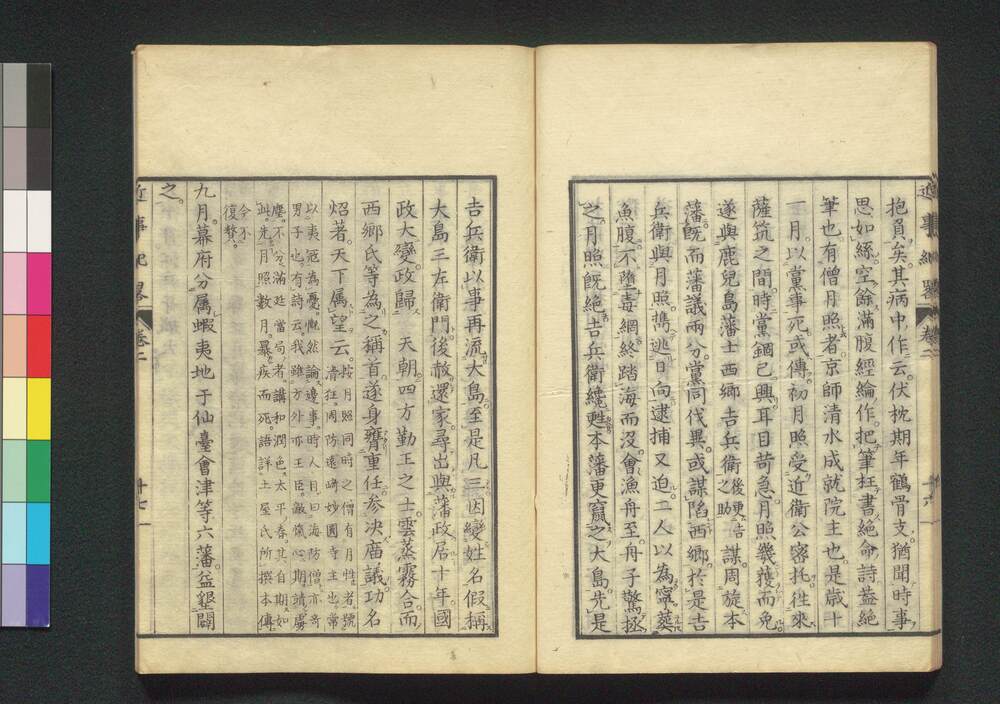 近事紀略 卷二 十六
抱負矣其病中作云伏枕期年鶴骨支猶聞時事
思如絲空餘滿腹經綸作把筆枉書絶命詩葢絶
筆也有僧月照者京師清水成就院主也是歳十
一月以黨事死或傳初月照受近衛公密托往來
薩筑之間時黨錮已興耳目苛急月照幾獲而免
遂與鹿兒島藩士西郷吉兵衛後更吉之助謀周旋本
藩既而藩議兩分黨同伐異或謀陷西郷於是吉
兵衛與月照携逃日向逮捕又迫二人以為寧葬
魚腹不墮毒網終踏海而沒會漁舟至舟子驚拯
之月照既絶吉兵衛纔甦本藩更竄之大島先是
吉兵衛以事再流大島至是凡三因變姓名假稱
大島三左衛門後赦還家尋出與藩政居十年國
政大變政歸 天朝四方勤王之士雲蒸霧合而
西郷氏等為之稱首遂身膺重任參决庙議功名
炤著天下属望云按月照同時之僧有月性者號
清狂周防遠崎妙圓寺主也常
以夷寇為憂慨然論邊事時人目曰海防僧亦奇
男子也有詩云我雖方外亦王臣敵愾心期靖虜
塵不分滿廷當局者講和潤色太平春其自期如
此先月照數月暴疾而死語詳土屋氏所撰本傳
今不
復贅
九月幕府分属蝦夷地于仙臺會津等六藩益墾闢
之
近事紀略 卷二 十七